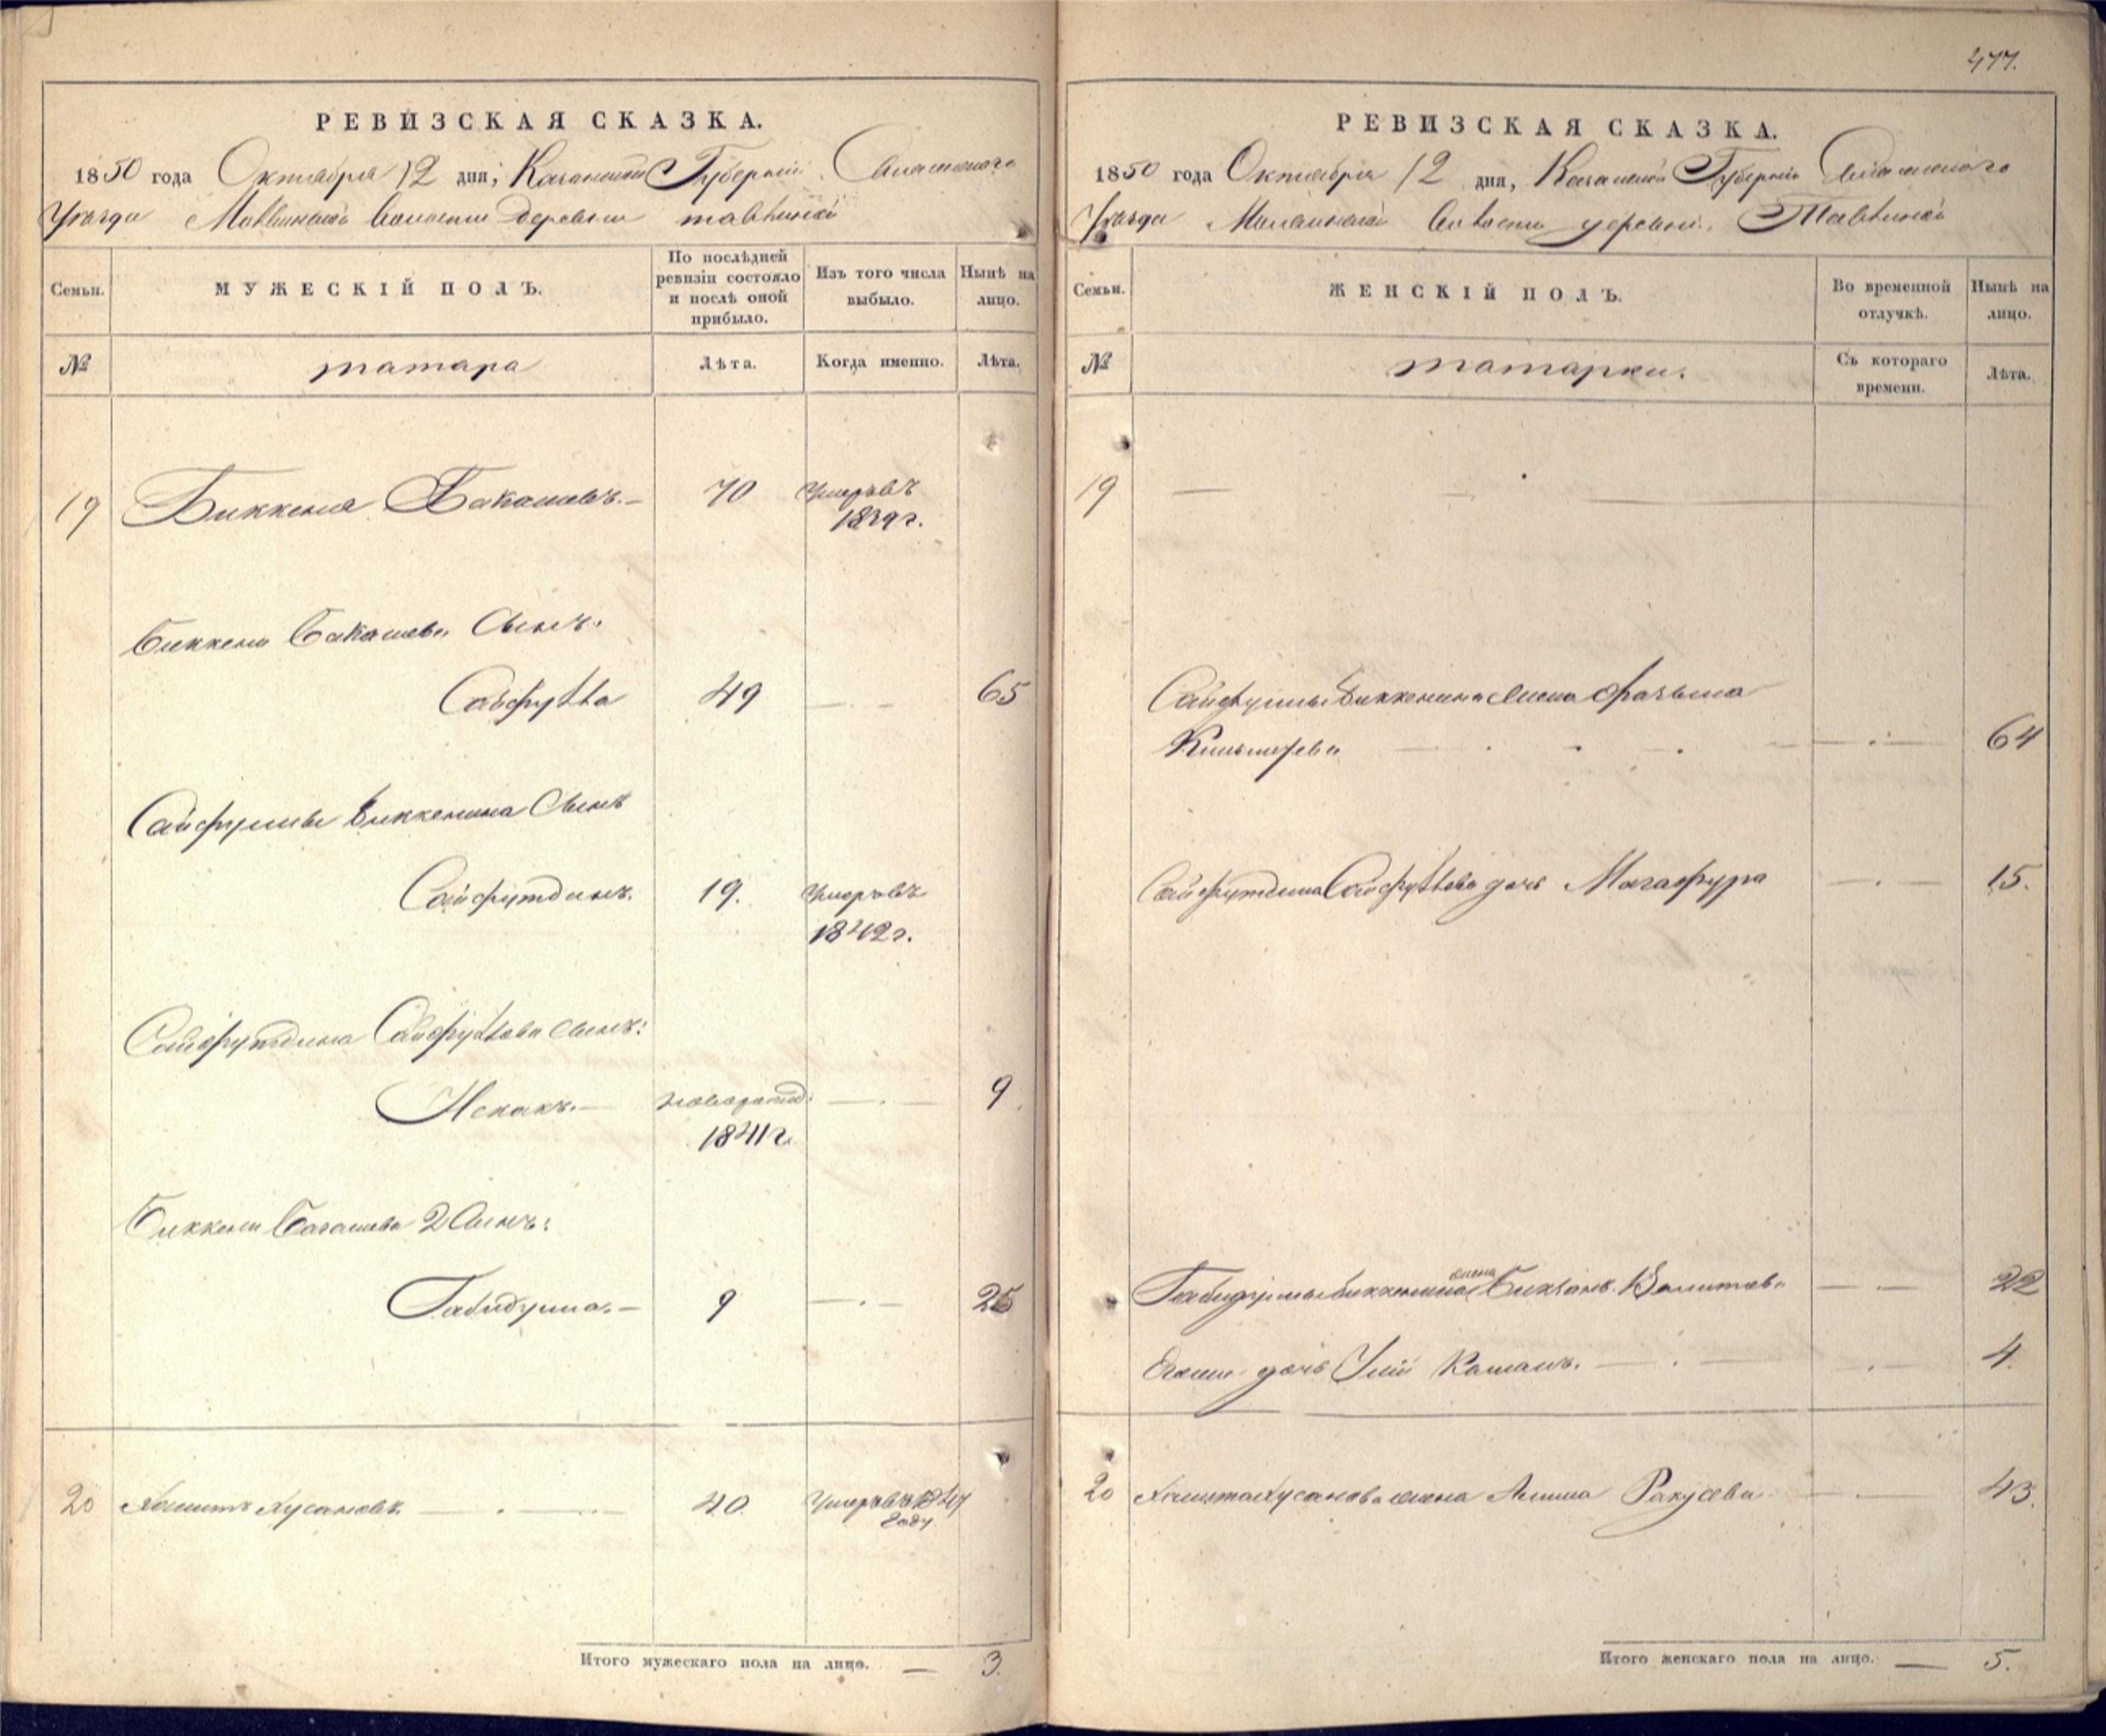 477.
РЕВИЗСКАЯ СКАЗКА.
1850 года Октября 12 дня, Казанской Губернии Спасскаго
Уезда Волости деревни
Семьи.
МУЖЕСКІЙ ПОЛЪ.
По послѣдней ревизіи состояло и послѣ оной прибыло.
Изъ того числа выбыло.
Нынѣ на лицо.
№
татара
Лѣта.
Когда именно.
Лѣта.
19 Биккеня Бакашевъ.— 70 Умеръ въ
1839 г.
Биккени Бакашева Сынъ.
Сайфулла 49 — 65
Сайфуллы Биккенина Сынъ
Сайфутдинъ. 19. Умеръ въ
1842 г.
Сайфутдина Сайфуллова Сынъ:
Исхакъ.— новорожд: — 9
1841 г.
Биккени Бакашева 2 Сынъ:
Габидулла.— 9 — 25
20 Хамитъ Хусановъ. — 40. Умеръ въ 1847
Году.
Итого мужескаго пола на лицо. — 3.
РЕВИЗСКАЯ СКАЗКА.
1850 года Октября 12 дня, Казанской Губерніи Спасскаго
Уезда Волости деревни
Семьи.
ЖЕНСКІЙ ПОЛЪ.
Во временной отлучкѣ.
Нынѣ на лицо.
№
татарки.
Съ котораго времени.
Лѣта.
19 —
Сайфуллы Биккенина жена Фатьма
— 64
Сайфутдина Сайфуллова дочь Магафура — 15.
жена
Габидуллы Биккенина — 22
дочь Камалъ. — 4.
20 Хамита Хусанова жена — 43.
Итого женскаго пола на лицо. — 5.